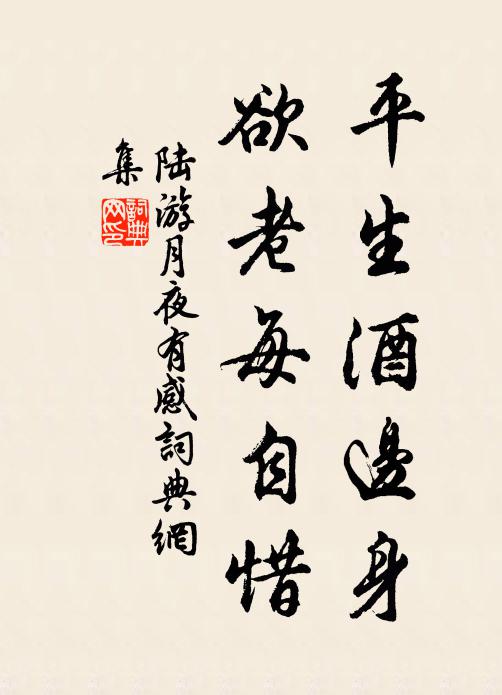 平生酒邊身
欲老每自惜
陆游月夜有感詞典網
集
詞典
网印